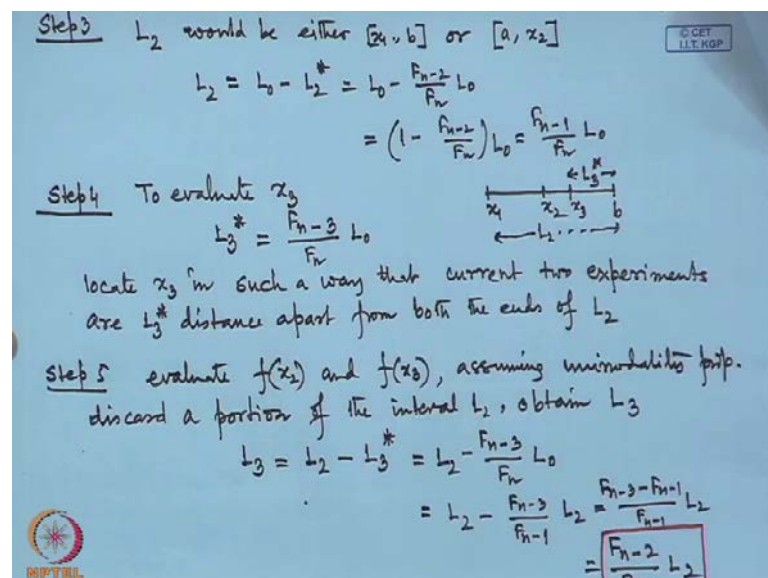 Step 3 L₂ would be either [x₁, b] or [a, x₂]
© CET
I.I.T. KGP
L₂ = L₀ - L₂* = L₀ - Fₙ₋₂/Fₙ L₀
= (1 - Fₙ₋₂/Fₙ) L₀ = Fₙ₋₁/Fₙ L₀
Step 4 To evaluate x₃
← L₃* →
x₁ x₂ x₃ b
← L₂ ····→
L₃* = Fₙ₋₃/Fₙ L₀
locate x₃ in such a way that current two experiments
are L₃* distance apart from both the ends of L₂
Step 5 evaluate f(x₂) and f(x₃), assuming unimodality prop.
discard a portion of the interval L₂, obtain L₃
L₃ = L₂ - L₃* = L₂ - Fₙ₋₃/Fₙ L₀
= L₂ - Fₙ₋₃/Fₙ₋₁ L₂ = Fₙ₋₃-Fₙ₋₁/Fₙ₋₁ L₂
= Fₙ₋₂/ L₂
NPTEL